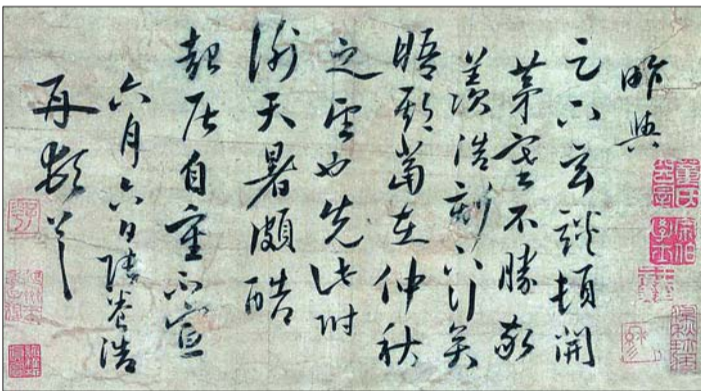 昨與
足下玄談頓開
茅塞不勝敬
羨浩刻下行矣
晤期當在仲秋
之望也先此附
謝天暑頗酷
起居自重不宣
六月六日眷浩
再頓首